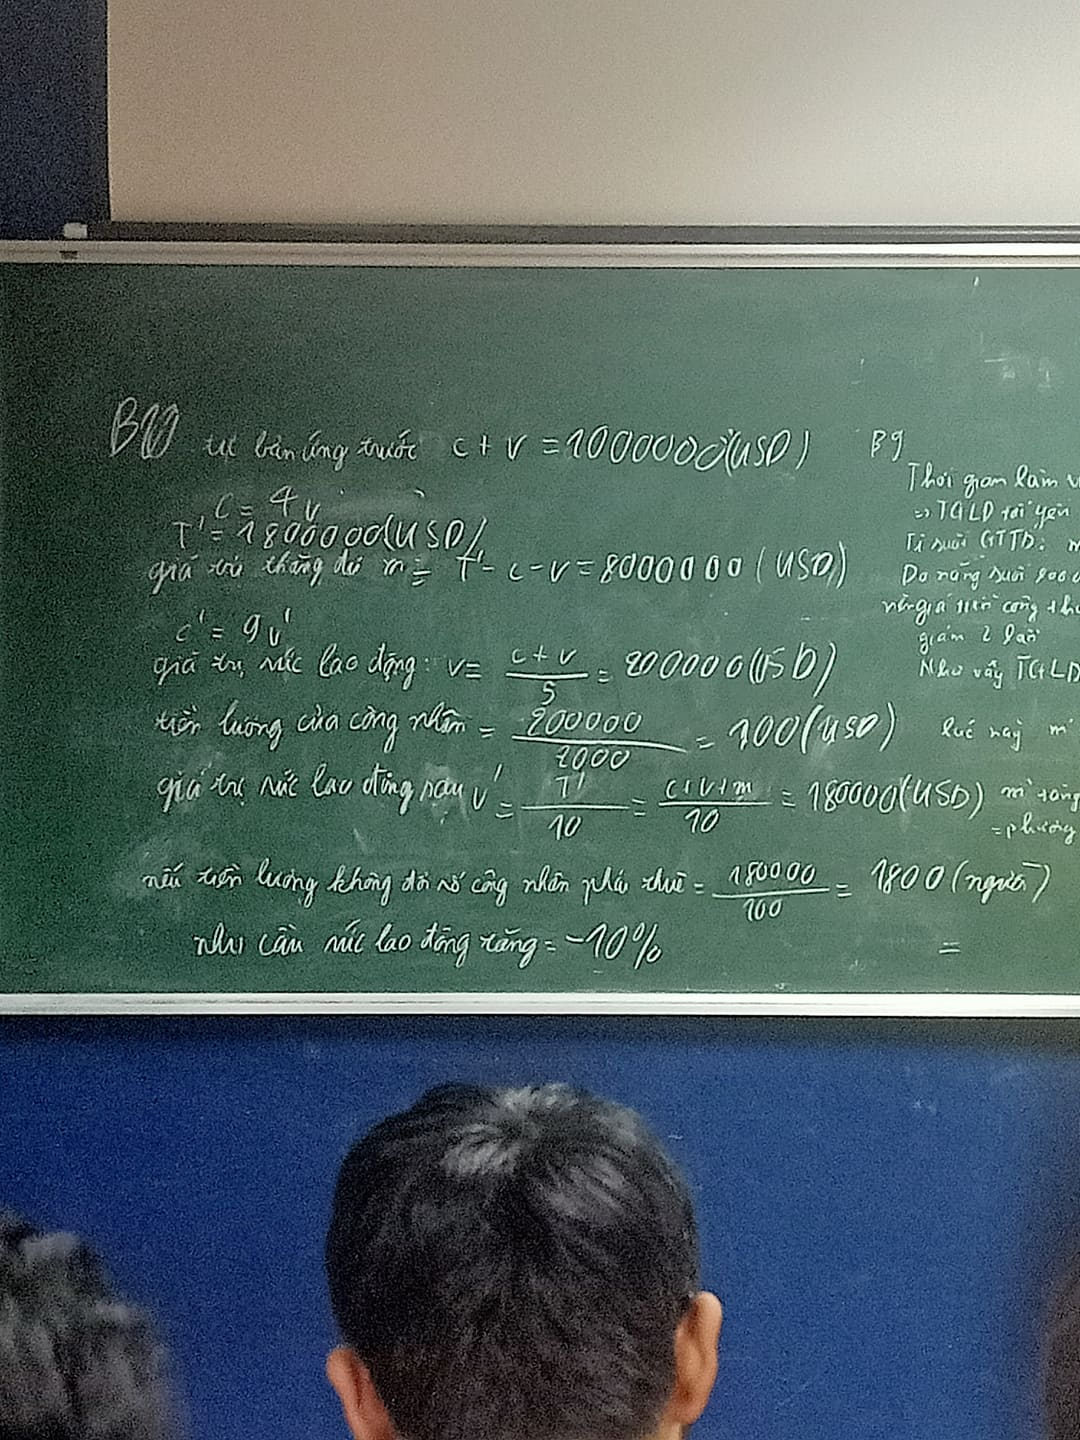 B10 tư bản ứng trước c + v = 1000000 (USD)
C = 4v
T' = 1800000 (USD)
giá trị thặng dư m = T' - c - v = 8000000 (USD)
c' = 9v'
giá trị sức lao động: v = c + v / 5 = 200000 (USD)
tiền lương của công nhân = 200000 / 2000 = 100 (USD)
giá trị sức lao động sau v' = T' / 10 = c + v + m / 10 = 180000 (USD)
nếu tiền lương không đổi số công nhân phải thuê = 180000 / 100 = 1800 (người)
nhu cầu sức lao động tăng = -10%
B9
Thời gian làm
=> TGLD tất yếu
Tỉ suất GTTD:
Do năng suất
giá tiền công
giảm 2 lần
Như vậy TGLD
lúc này m'
m' tăng
= phương
=